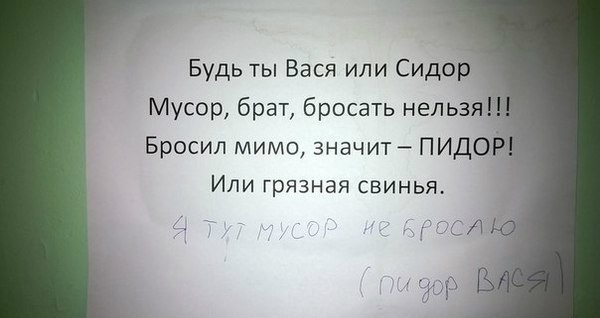 Будь ты Вася или Сидор
Мусор, брат, бросать нельзя!!!
Бросил мимо, значит – ПИДОР!
Или грязная свинья.
Я ТУТ МУСОР НЕ БРОСАЮ
(ПИДОР ВАСЯ)